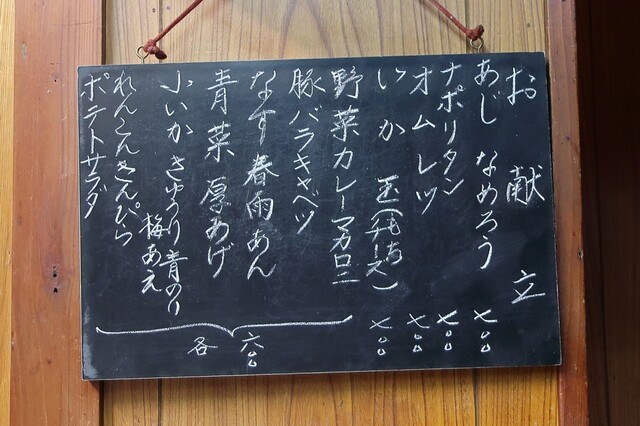 お献立
あじ なめろう 七〇〇
ナポリタン 七〇〇
オムレツ 七〇〇
いか 玉(もちチーズ) 七〇〇
野菜カレーマカロニ
豚バラキャベツ
なす春雨あん
青菜 厚あげ
小いか きゅうり 青のり
梅あえ
れんこんきんぴら
ポテトサラダ
各 六〇〇